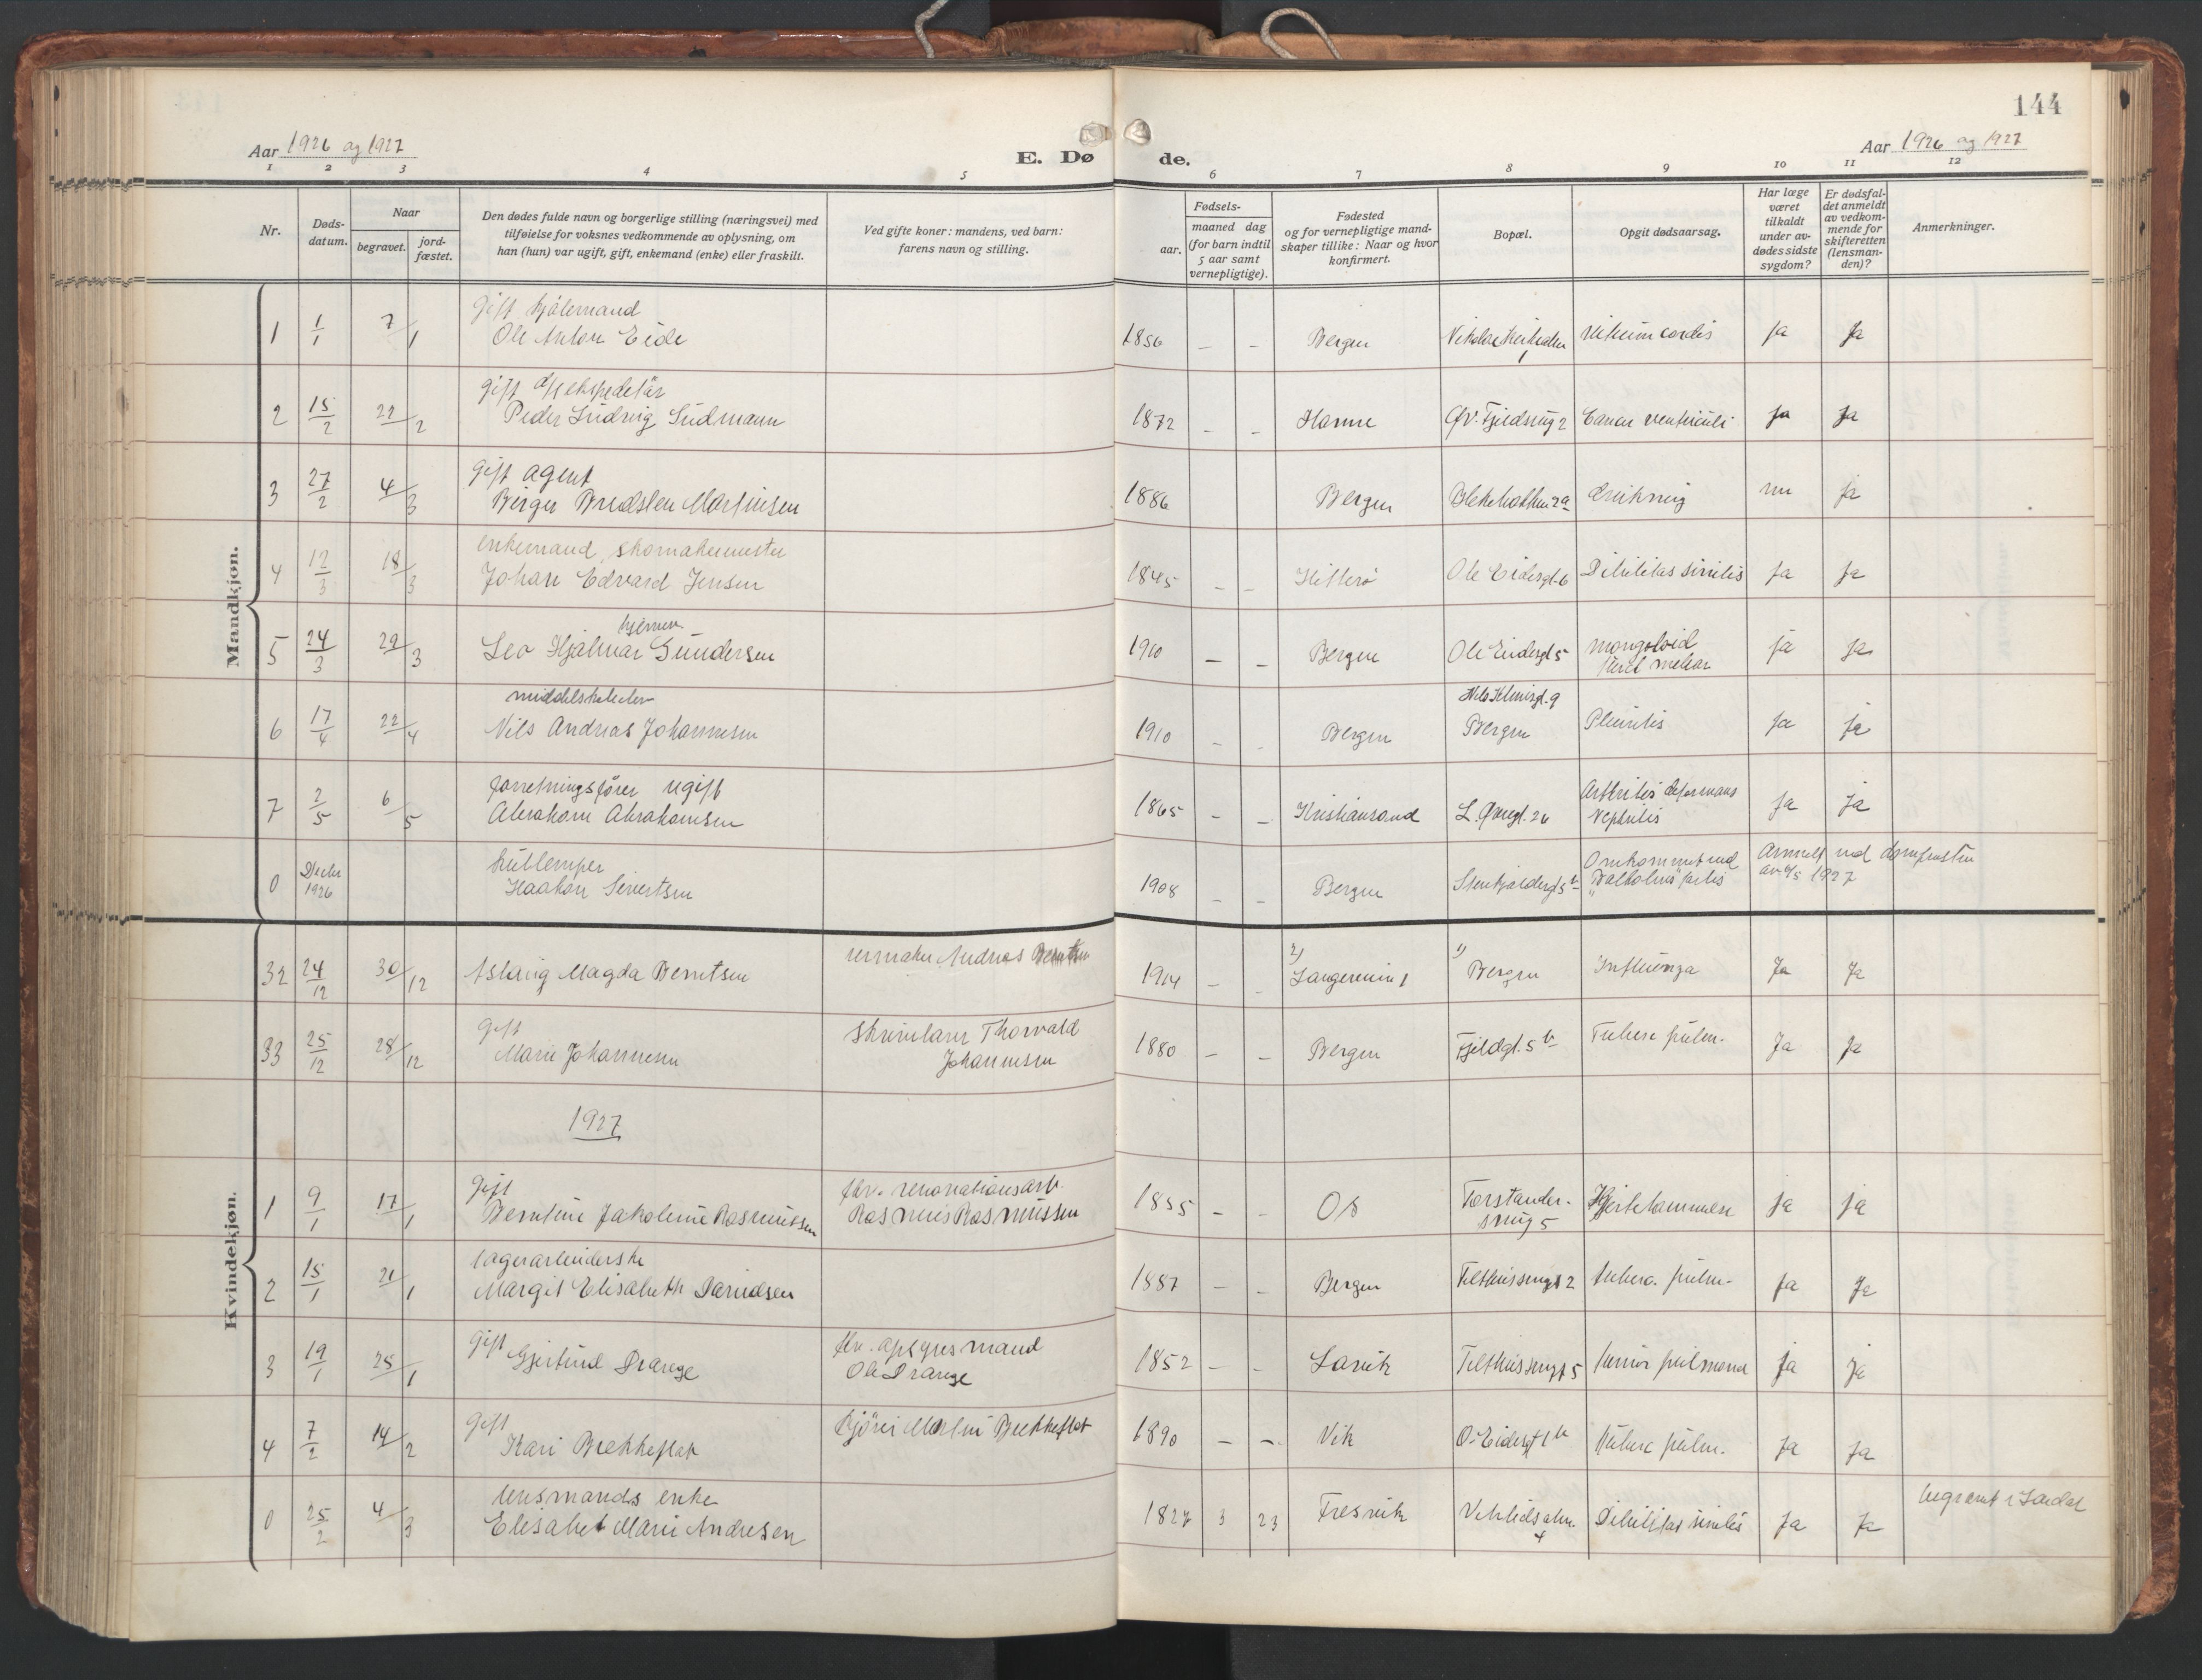 144
Aar 1926 og 1927
E. Dø de.
Aar 1926 og 1927
1 2 3 4 5 6 7 8 9 10 11 12
Nr.
Døds-
datum.
Naar
begravet.
jord-
fæstet.
Den dødes fulde navn og borgerlige stilling (næringsvei) med
tilføielse for voksnes vedkommende av oplysning, om
han (hun) var ugift, gift, enkemand (enke) eller fraskilt.
Ved gifte koner: mandens, ved barn:
farens navn og stilling.
Fødsels-
aar.
maaned dag
(for barn indtil
5 aar samt
vernepligtige).
Fødested
og for vernepligtige mand-
skaper tillike: Naar og hvor
konfirmert.
Bopæl.
Opgit dødsaarsag.
Har læge
været
tilkaldt
under av-
dødes sidste
sygdom?
Er dødsfal-
det anmeldt
av vedkom-
mende for
skifteretten
(lensman-
den)?
Anmerkninger.
Mandkjøn.
gift
1 1/1 7/1 Ole Anton Eide 1856 – – Bergen 1 vitium cordis Ja Ja
gift ekspeditør
2 15/2 22/2 Peder Ludvig Sudmann 1872 – – Øv. Fjeldsmug 2 Cancer ventriculi Ja Ja
gift agent
3 27/2 4/3 Birger Martinsen 1886 Bergen drukning ja
enkemand, skomakermester
4 12/3 18/3 Johan Edvard Jensen 1845 – – Hitterø Ole Eidesgt. 6 Debilitas senilis Ja Ja
hjemmev.
5 24/3 29/3 Leo Hjalmar Gundersen 1910 – – Bergen 5 mongoloid ja Ja
middelskoleelev
6 17/4 22/4 Nils Andreas Johannesen 1910 – – Bergen Nils Klimsgt. 9
Bergen Pleuritis Ja ja
forretningsfører ugift
7 2/5 6/5 Abraham Abrahamsen 1865 – – Kristiansand L. Øvregt. 26 Arthritis deformans
Nephritis Ja ja
kullemper
0 Decbr
1926 Haakon Sivertsen 1908 – – Bergen Steinkjeldergt 5 b Omkommet ved
forlis Anmeldt ved domprosten
1927
Kvindekjøn.
32 24/12 30/12 Aslaug Magda Berntsen urmaker Andreas Berntsen 1914 – – 2) 1 1) Bergen Influenza Ja Ja
gift
33 25/12 28/12 Marie Johannesen Thorvald
Johannesen 1880 – – Bergen Fjeldgt. 5 b Tuberc. pulm. Ja Ja
1927
gift
1 9/1 17/1 Berntine Jakobine Rasmussen fhv. renovationsarb.
Rasmus Rasmussen 1855 – – Os Forstander-
smug 5 Hjertelammelse ja ja
lagerarbeiderske
2 15/1 21/1 Margit Elisabeth Davidsen 1887 – – Bergen 2 tuberc. pulm. Ja Ja
gift
3 19/1 25/1 Gjertrud Drange fhv. opsynsmand
Ole Drange 1852 – – 5 tumor pulmonum Ja ja
gift
4 7/2 14/2 Kari Brekkeflat Martin Brekkeflat 1890 – – Vik O. Eidesgt 1 b tuberc pulm. Ja Ja
lensmands enke
0 25/2 4/3 Elisabet Marie Andresen 1827 3 23 Fresvik 4 Debilitas senilis Ja Ja begravet i